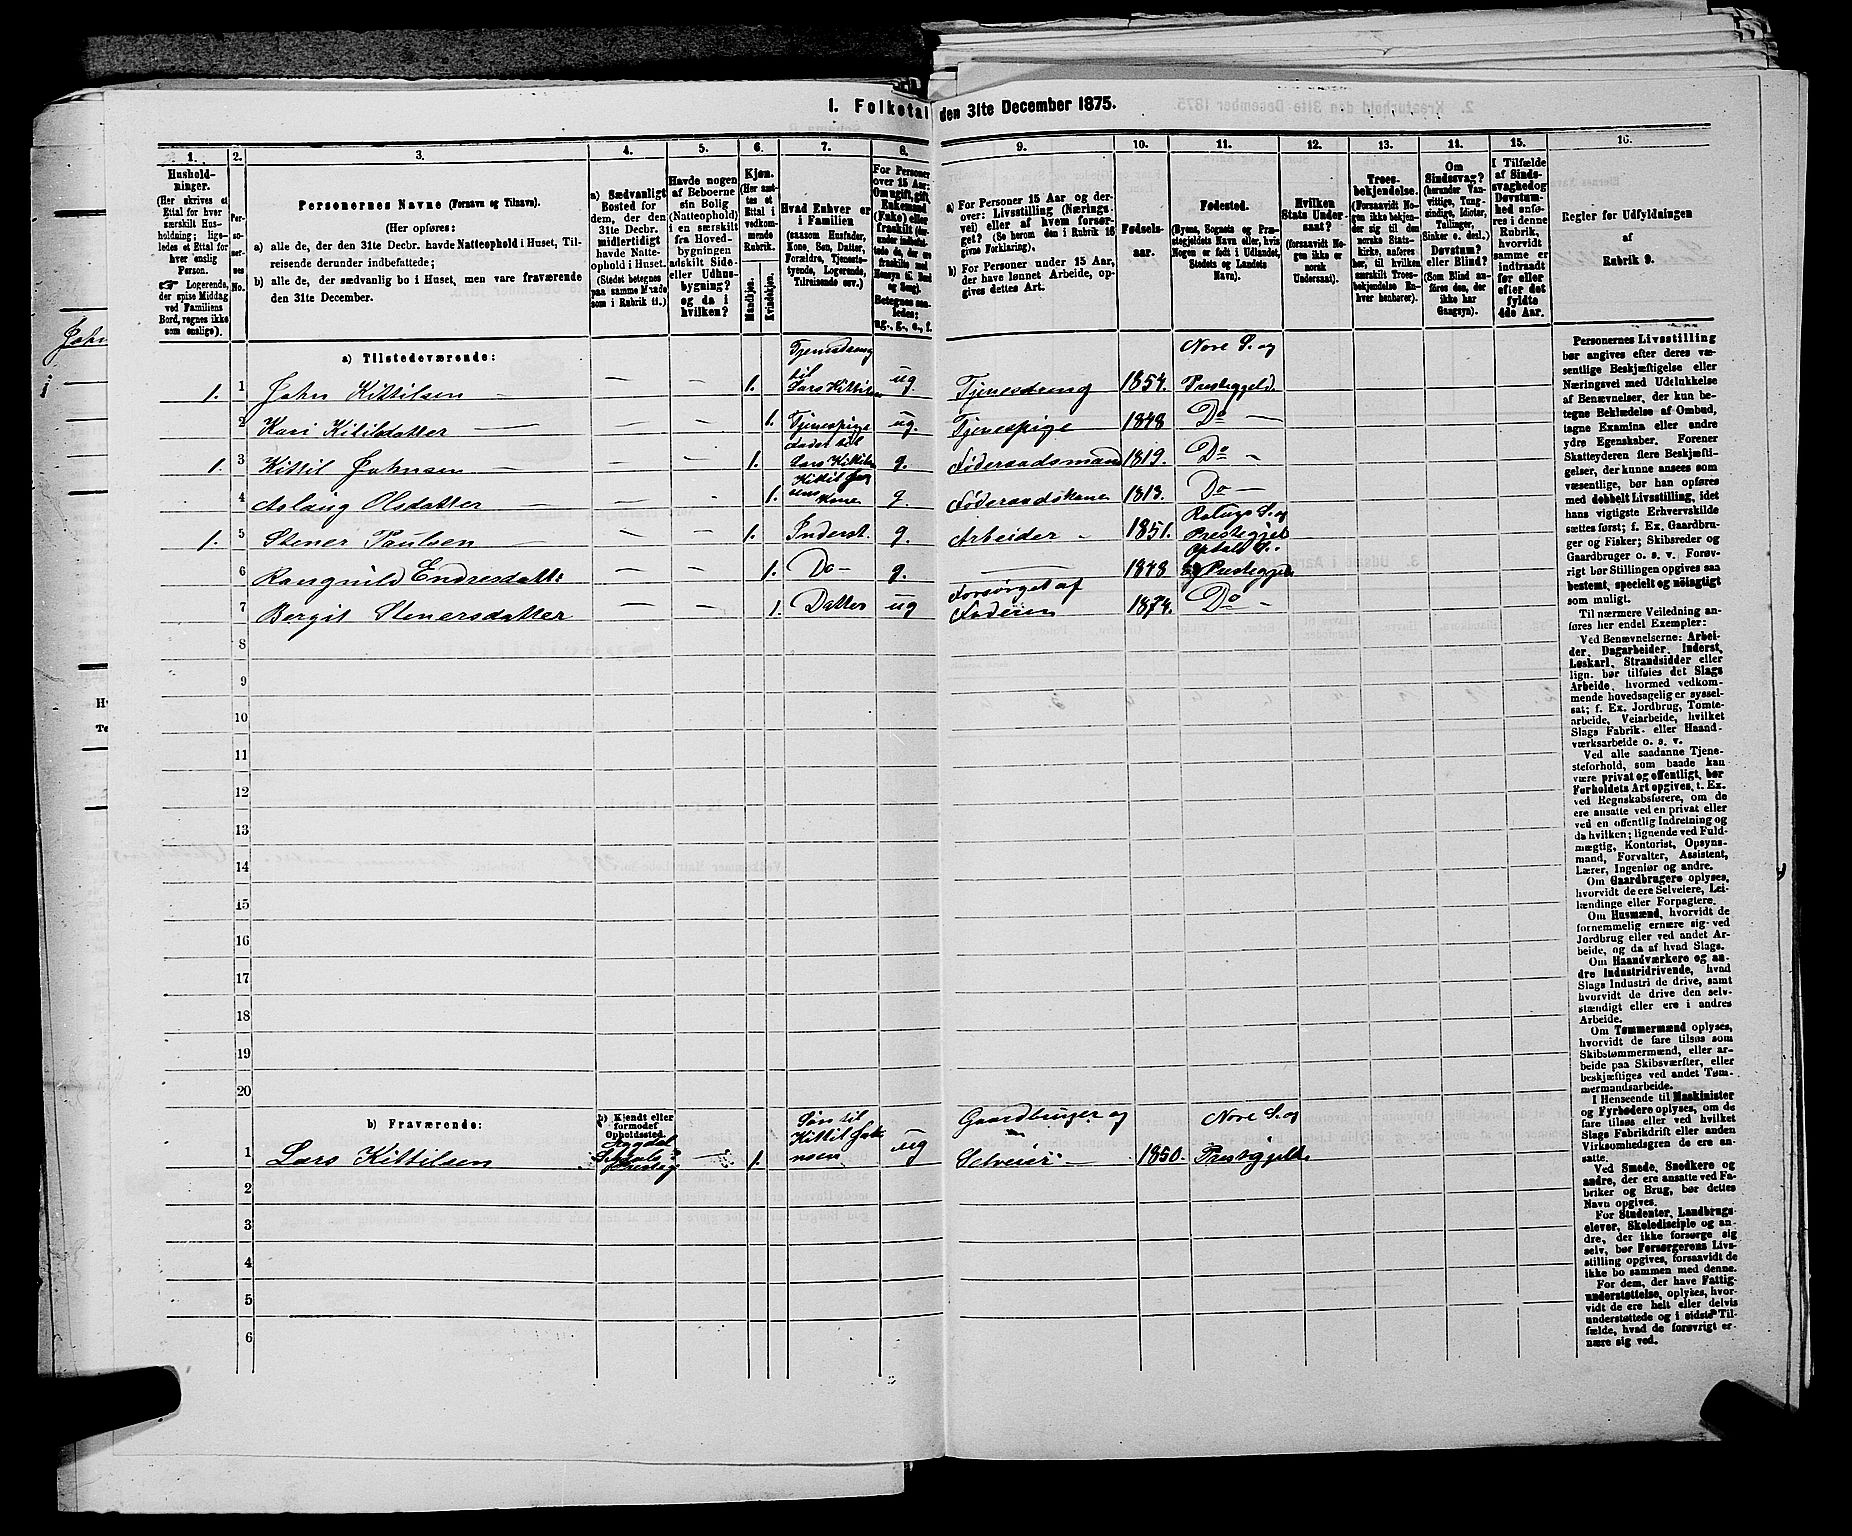 1. Folketal den 31te December 1875.
1. 2. 3. 4. 5. 6. 7. 8. 9. 10. 11. 12. 13. 14. 15. 16.
Hushold-
ninger.
(Her skrives et
Ettal for hver
særskilt Hus-
holdning; lige-
ledes et Ettal for
hver enslig
Person.
☞ Logerende,
der spise Middag
ved Familiens
Bord, regnes ikke
som enslige).
Per-
so-
ner-
nes
No.
Personernes Navne (Fornavn og Tilnavn).
(Her opføres:
a) alle de, der den 31te Decbr. havde Natteophold i Huset, Til-
reisende derunder indbefattede;
b) alle de, der sædvanlig bo i Huset, men vare fraværende
den 31te December.
a) Sædvanligt
Bosted for
dem, der den
31te Decbr.
midlertidigt
havde Natte-
ophold i Huset.
(Stedet betegnes
paa samme Maade
som i Rubrik 11.)
Havde nogen
af Beboerne
sin Bolig
(Natteophold)
i en særskilt
fra Hoved-
bygningen
adskilt Side-
eller Udhus-
bygning?
og da i
hvilken?
Kjøn.
(Her sæt-
tes et
Ettal i
vedkom-
mende
Rubrik.
Mandkjøn.
Kvindekjøn.
Hvad Enhver er
i Familien
(saasom Husfader,
Kone, Søn, Datter,
Forældre, Tjeneste-
tyende, Logerende,
Tilreisende osv.)
For Personer
over 15 Aar:
Om ugift, gift,
Enkemand
(Enke) eller
fraskilt
Betegnes saa-
ledes:
ug., g., e., f.
a) For Personer 15 Aar og der-
over: Livsstilling (Nærings-
vei) eller af hvem forsør-
get? (Se herom den i Rubrik 16
givne Forklaring).
b) For Personer under 15 Aar,
der have lønnet Arbeide, op-
gives dettes Art.
Fødsels-
aar.
Fødested.
(Byens, Sognets og Præ-
stegjeldets Navn eller, hvis
Nogen er født i Udlandet,
Stedets og Landets
Navn).
Hvilken
Stats Under-
saat?
(forsaavidt No-
gen ikke er
norsk
Undersaat).
Troes-
bekjendelse.
(Forsaavidt No-
gen ikke bekjen-
der sig til den
norske Stats-
kirke, anføres
her, til hvilken
særskilt Troes-
bekjendelse En-
hver henhører).
Om
Sindssvag?
(herunder Van-
vittige, Tung-
sindige, Idioter,
Tullinger,
Sinker o. desl.)
Døvstum?
eller Blind?
(Som Blind an-
føres den, der ikke
har
Gangsyn).
I Tilfælde
af Sinds-
svaghed og
Døvstum-
hed anfø-
res i denne
Rubrik,
hvorvidt
samme er
indtraadt
før eller
efter det
fyldte
4de Aar.
Regler for Udfyldningen
af
Rubrik 9.
a) Tilstedeværende:
1. 1 John Kittilsen — — — 1. Tjenestdreng til Lars Kittilsen ug Tjenesdreng 1854. Nore S. og Prestegjeld.
2 Kari Kitilsdatter — — — 1. Tjenespige ug. Tjenespige 1848 Do —
1. 3 Kittil Johnsen — — — 1. Fader til Lars Kittilsen g. Føderaadsmand 1819. Do —
4 Aslaug Olsdatter — - 1. Kittil Johnsens Kone g. Føderaadskone 1813. Do —
1. 5 Stener Paulsen — — — 1. Inderst. g. Arbeider - 1851. S. og Prestegjel
6 Rangnild Endresdatt: — — 1. Do — g. — 1848 Opdals S. og Prestegjel.
7 Bergit Stenersdatter — — 1. Datter ug Forsørget af Faderen 1874. Do -
8
9
10
11
12
13
14
15
16
17
18
19
20
b) Fraværende:
b) Kjendt eller
formodet
Opholdssted.
1 Lars Kittilsen — 1. Søn til Kittil Johnsen ug Gaardbruger og Selveier — 1850. Nore S. og Prestegjeld.
2
3
4
5
6
Personernes Livsstilling
bør angives efter deres væ-
sentlige Beskjæftigelse eller
Næringsvei med Udelukkelse
af Benævnelser, der kun be-
tegne Beklædelse af Ombud,
tagne Examina eller andre
ydre Egenskaber. Forener
Skatteyderen flere Beskjæfti-
gelser, der kunne ansees som
væsentlige, bør han opføres
med dobbelt Livsstilling, idet
hans vigtigste Erhvervskilde
sættes først; f. Ex. Gaardbru-
ger og Fisker; Skibsreder og
Gaardbruger o. s. v. Forøv-
rigt bør Stillingen opgives saa
bestemt, specielt og nöiagtigt
som muligt.
Til nærmere Veiledning an-
føres her endel Exempler:
Ved Benævnelserne: Arbei-
der, Dagarbeider, Inderst,
Løskarl, Strandsidder eller
lign. bør tilføies det Slags
Arbeide, hvormed vedkom-
mende hovedsagelig er syssel-
sat; f. Ex. Jordbrug, Tomte-
arbeide, Veiarbeide, hvilket
Slags Fabrik- eller Haand-
værksarbeide o. s. v.
Ved alle saadanne Tjene-
steforhold, som baade kan
være privat og offentligt, bør
Forholdets Art opgives, t. Ex.
ved Regnskabsførere, om de
ere ansatte ved en privat eller
ved en offentlig Indretning og
da hvilken; lignende ved Fuld-
mægtig, Kontorist, Opsyns-
mand, Forvalter, Assistent,
Lærer, Ingeniør og andre.
Om Gaardbrugere oplyses,
hvorvidt de ere Selveiere, Lei-
lændinge eller Forpagtere.
Om Husmænd, hvorvidt de
fornemmelig ernære sig ved
Jordbrug eller ved andet Ar-
beide, og da af hvad Slags.
Om Haandværkere og an-
dre Industridrivende, hvad
Slags Industri de drive, samt
hvorvidt de drive den selv-
stændigt eller ere i andres
Arbeide.
Om Tømmermænd oplyses,
hvorvidt de fare tilsøs som
Skibstømmermænd, eller ar-
beide paa Skibsværfter, eller
beskjæftiges ved andet Tøm-
mermandsarbeide.
I Henseende til Maskinister
og Fyrbødere oplyses, om de
fare tilsøs eller ved hvilket
Slags Fabrikdrift eller anden
Virksomhedsgren de ere an-
satte.
Ved Smede, Snedkere og
andre, der ere ansatte ved Fa-
briker og Brug, bør dettes
Navn opgives.
For Studenter, Landbrugs-
elever, Skoledisciple og an-
dre, der ikke forsørge sig
selv, bør Forsørgerens Livs-
stilling opgives, forsaavidt de
ikke bo sammen med denne.
For dem, der have Fattig-
understøttelse, oplyses, hvor-
vidt de ere helt eller delvis
understøttede og i sidste Til-
fælde, hvad de forøvrigt er-
nære sig ved.